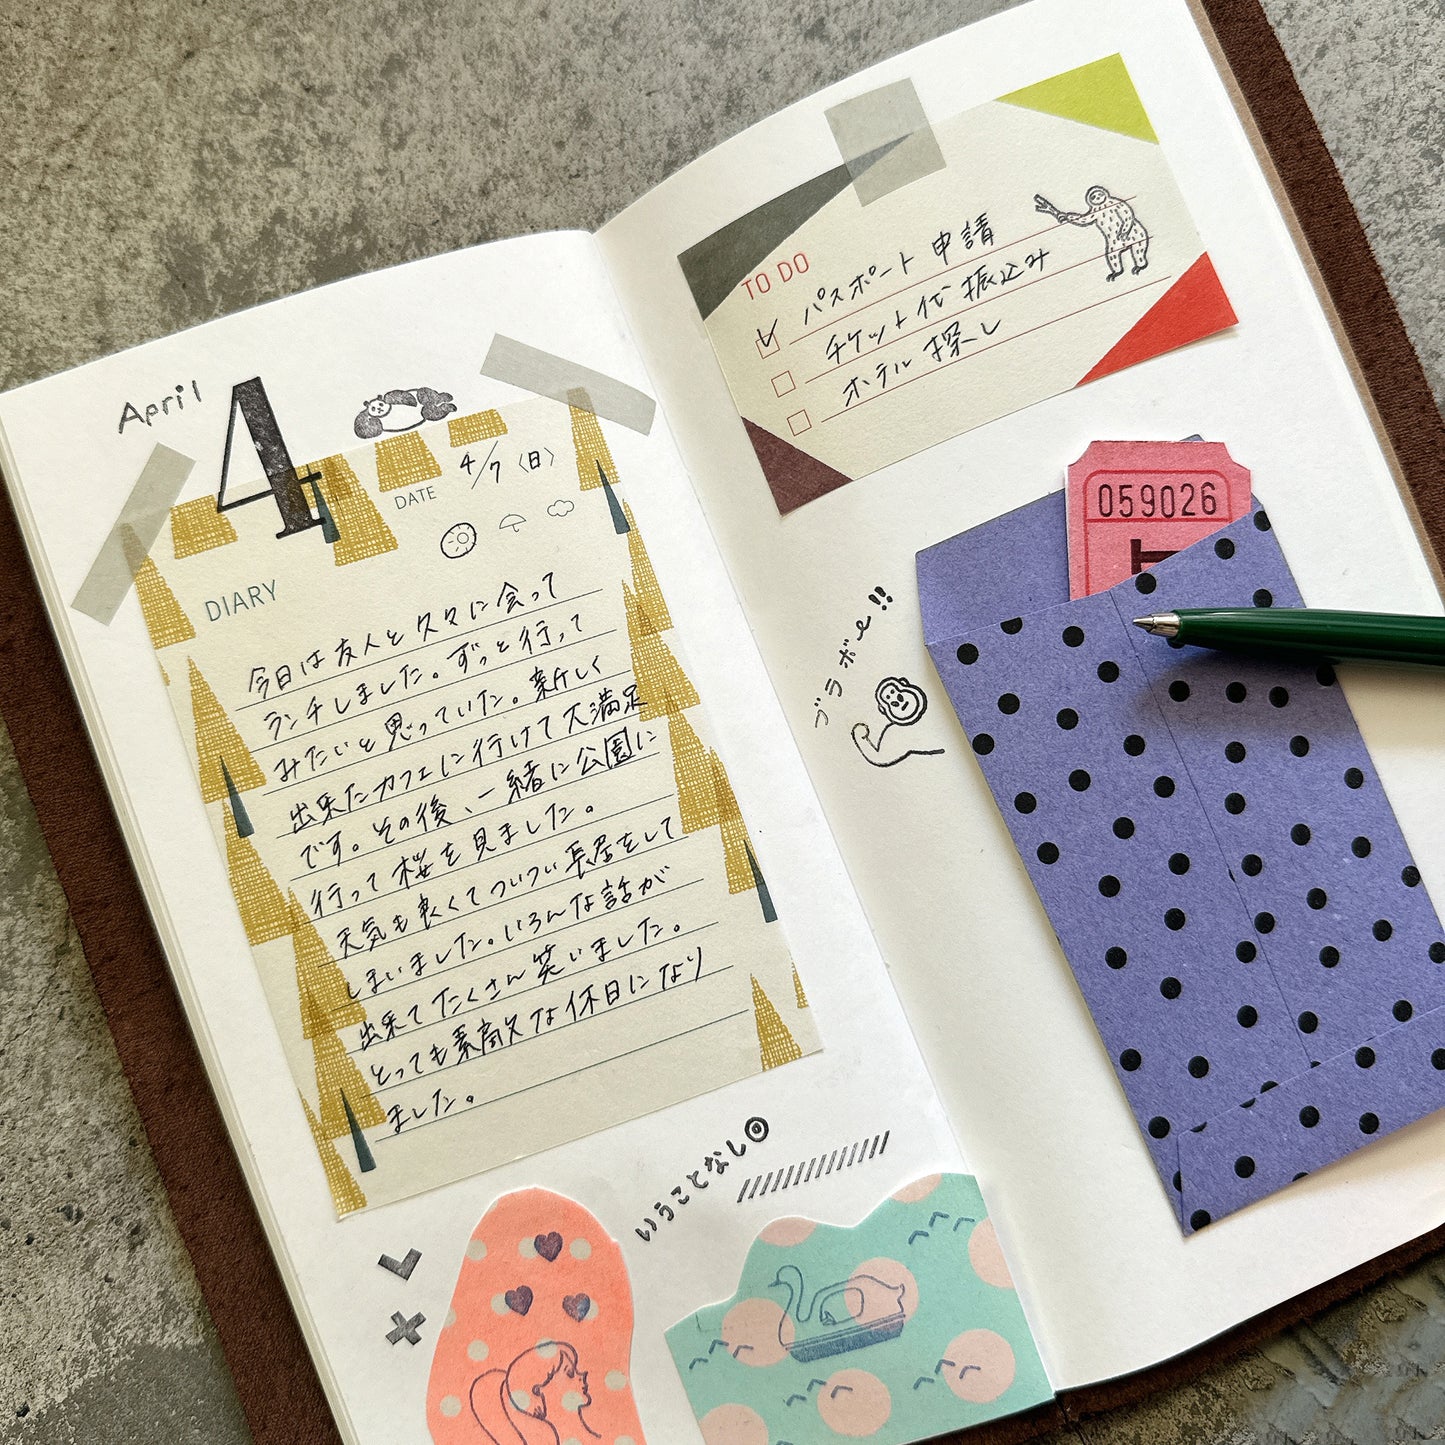 April
4
DATE
4/7(日)
DIARY
今日は友人と久々に会って
ランチしました。ずっと行って
みたいと思っていた。新しく
出来たカフェに行けて大満足
です。その後、一緒に公園に
行って桜を見ました。
天気も良くてついつい長居をして
しまいました。いろんな話が
出来てたくさん笑いました。
とっても素敵な休日になり
ました。
いうことなし◎
TO DO
パスポート申請
チケット代振込み
ホテル探し
059026
ブラボe!!